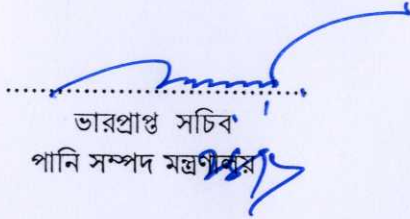 ভারপ্রাপ্ত সচিব
পানি সম্পদ মন্ত্রণালয়